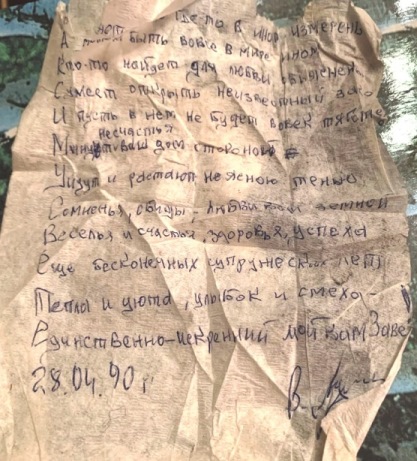 где-то в ином измерень
А может быть вовсе в мире ином
Кто-то найдет для любви объяснен
Сумеет открыть неизведанный зако
И пусть в нем не будет вовек тяготе
несчастья
Минут ваш дом стороной
Уйдут и растают неясною тенью
Сомненья, обиды, любви земной
Веселья и счастья, здоровья, успеха
Еще бесконечных супружеских лет
Тепла и уюта, улыбок и смеха
Единственно-искренний мой вам Заве
28.04.90 г